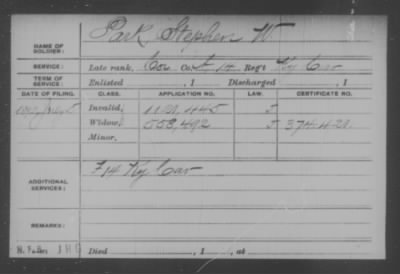 NAME OF SOLDIER: Park Stephen W
SERVICE: Late rank, Co. F 14 Reg't Ky Cav
TERM OF SERVICE: Enlisted , 1 Discharged , 1
DATE OF FILING. CLASS. APPLICATION NO. LAW. CERTIFICATE NO.
Invalid, 1121,445
Widow, 558,492 374.429
Minor,
ADDITIONAL SERVICES: F 14 Ky Cav
REMARKS:
Died , 1 , at